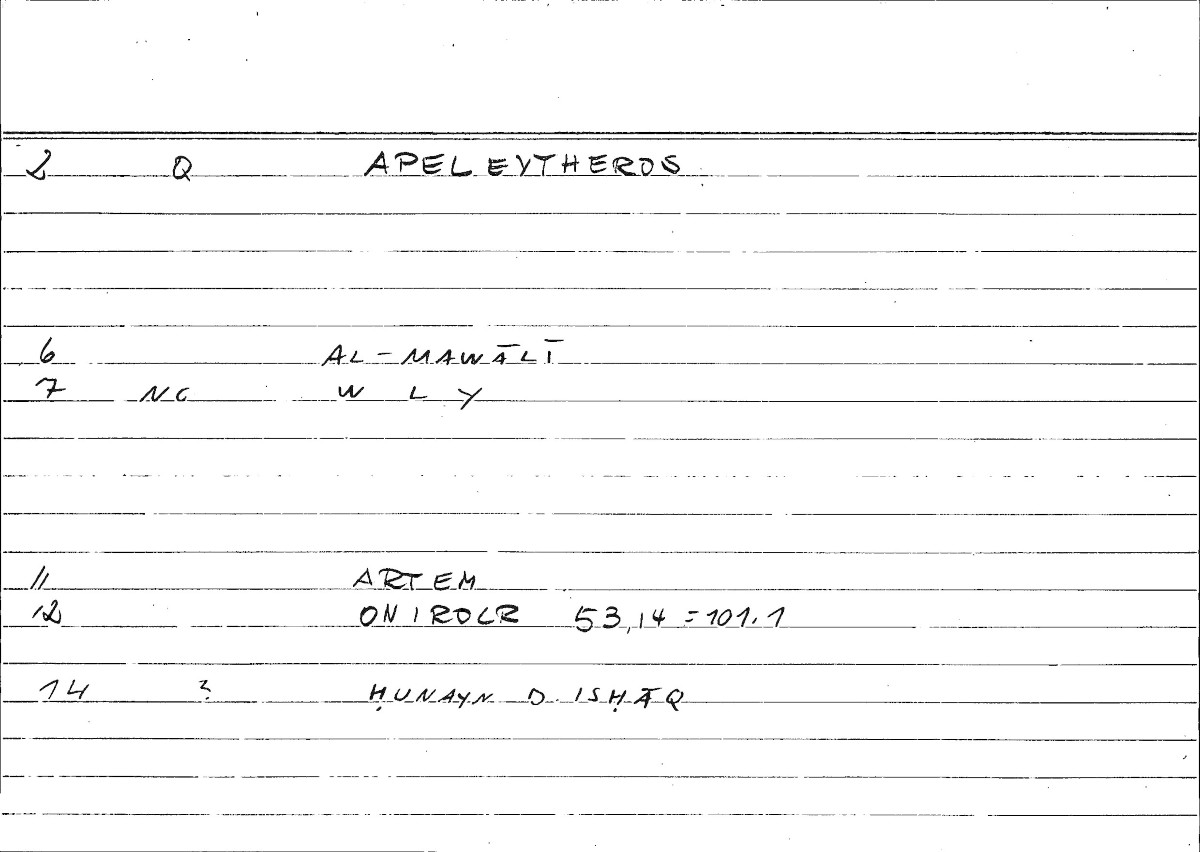 2 Q APELEYTHEROS
6 AL-MAWĀLĪ
7 NC W L Y
11 ARTEM
12 ONIROCR 53,14 = 101.1
14 ? ḤUNAYN B. ISḤĀQ